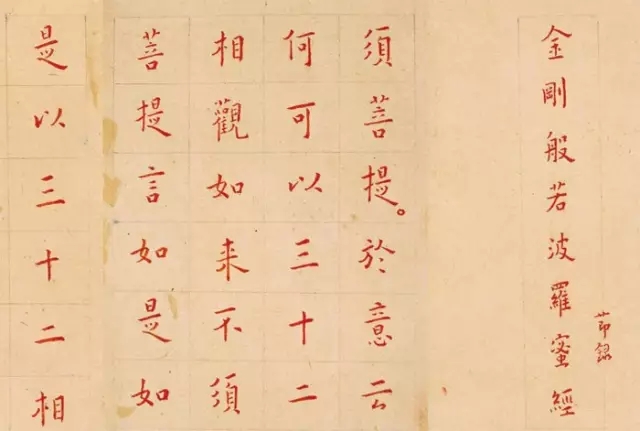 金剛般若波羅蜜經
節錄
須菩提。於意云
何可以三十二
相觀如来不須
菩提言如是如
是以三十二相